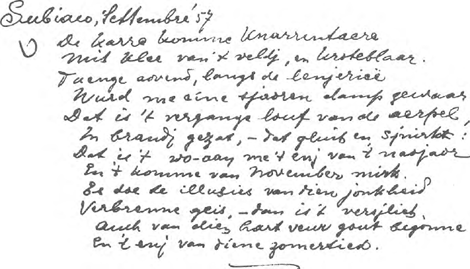 Subiaco, Settembre '57
De karre komme knarrentaere
Mit klee van 't veldj, en
Taenge aovend, langs de
Wurd me eine damp gewaar
Dat is 't vergange louf van de aerpel,
In brandj gezat, – dat gluit en
Dat is 't wo-aan me 't enj van 't naojaor
En 't komme van November mirk.
Es doe de illusies van dien jonkheid
Verbrenne geis, – dan is 't
Auch van dien hart veur gout begonne
En 't enj van diene zomertied.